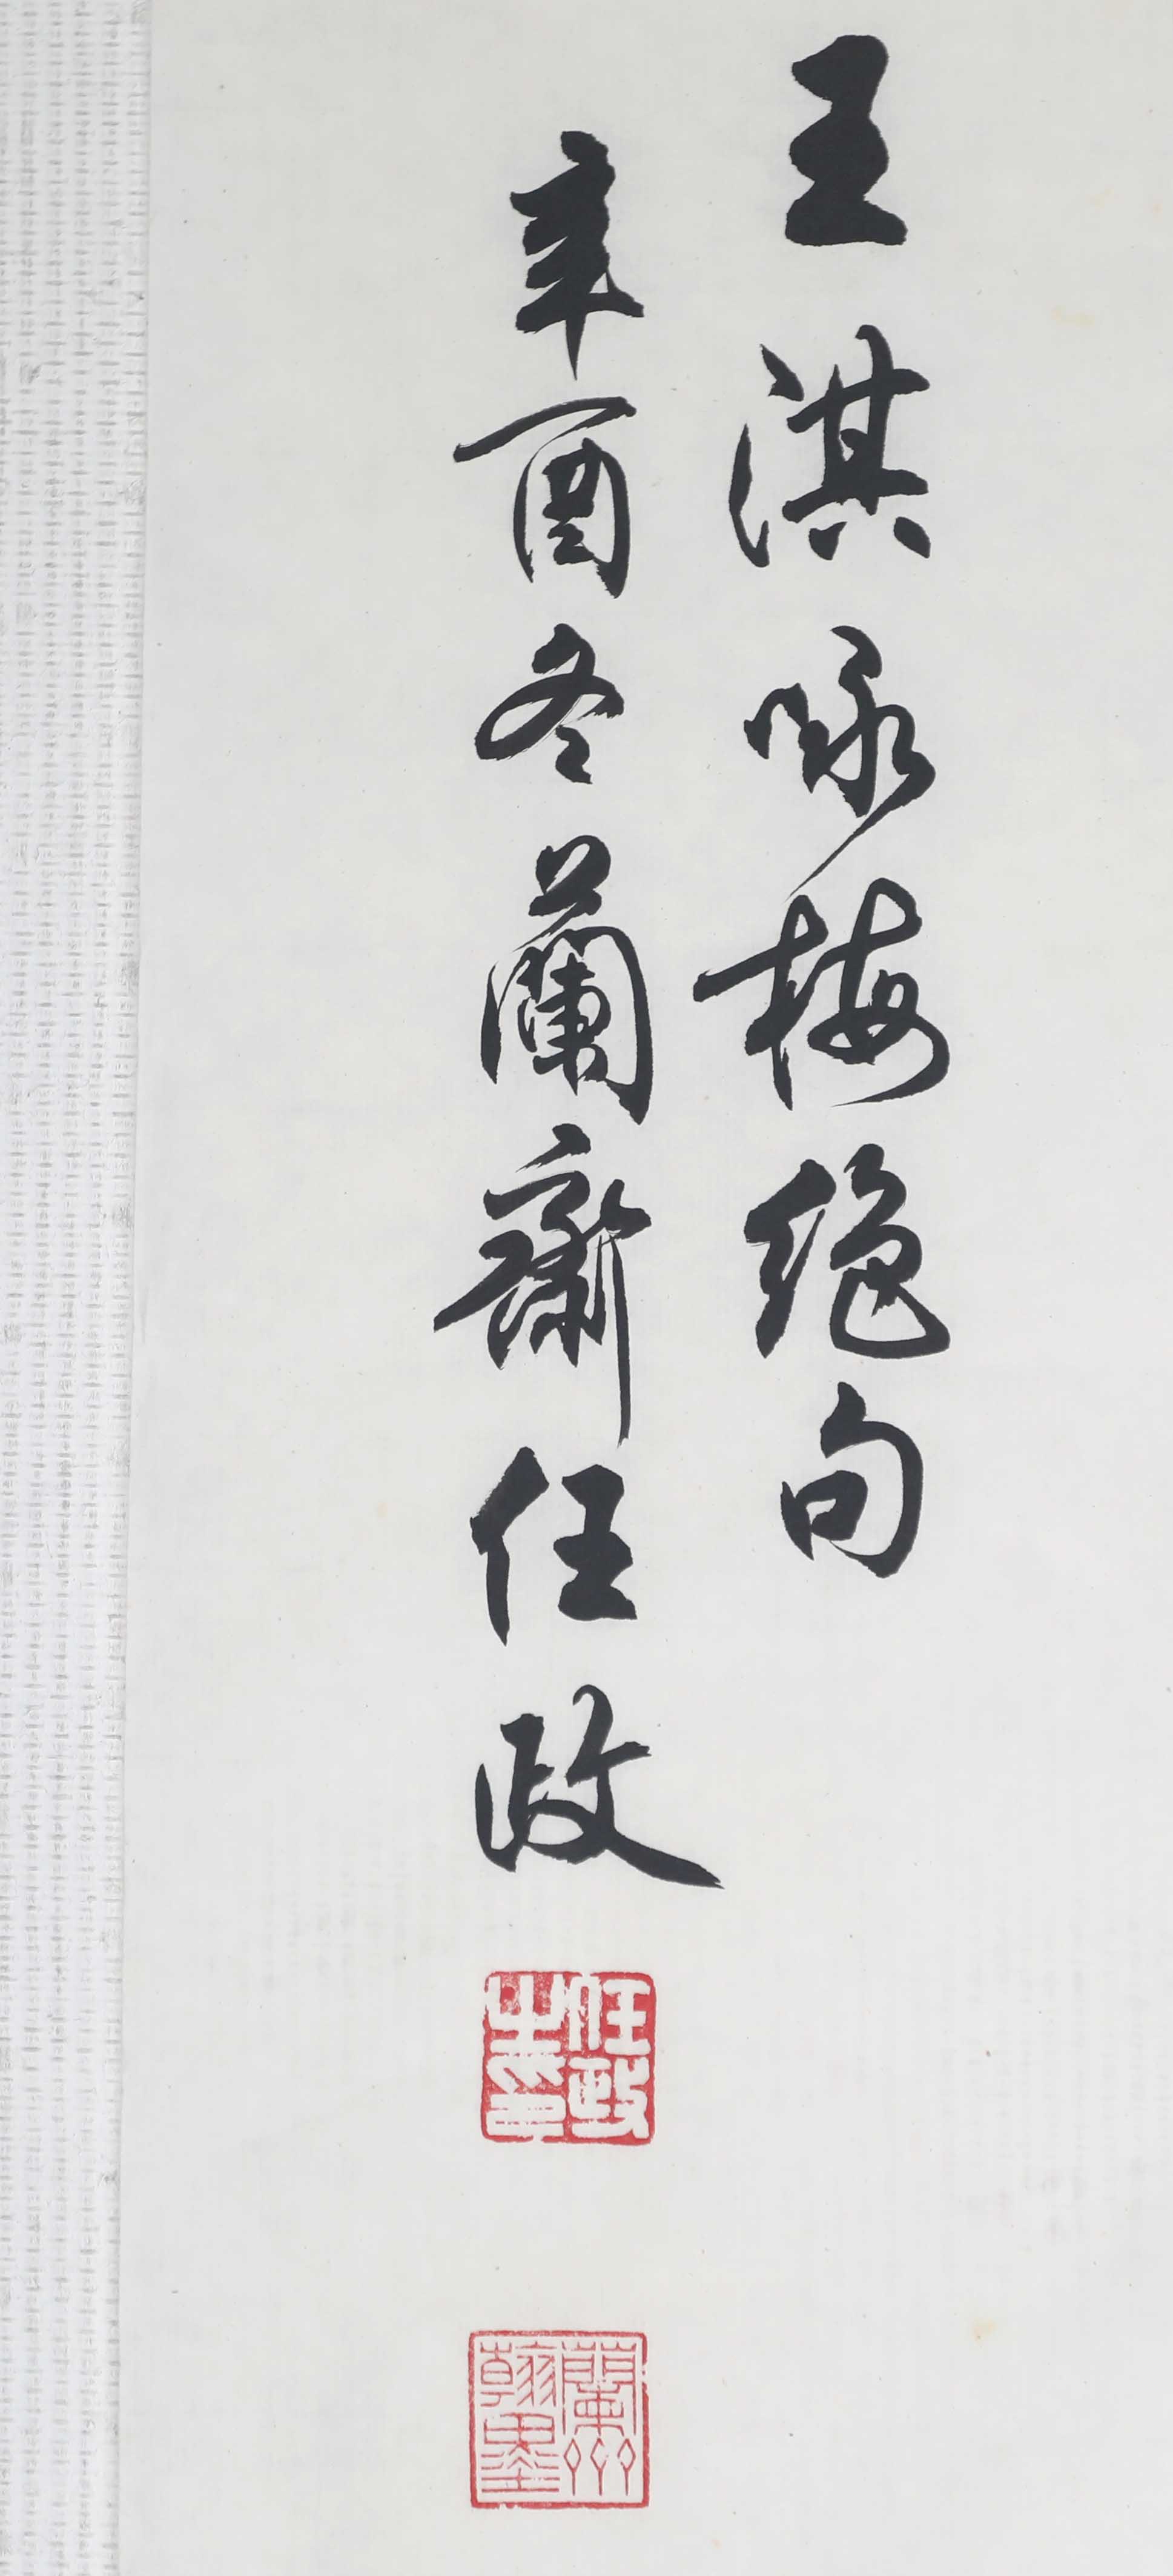 王淇咏梅绝句
辛酉冬蘭齋任政
任政之印
蘭齋翰墨